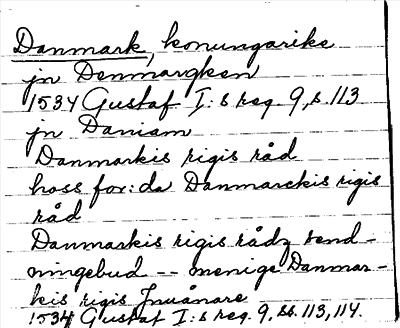 Danmark, konungarike
jn Denmargken
1534 Gustaf I:s reg. 9, s. 113
jn Daniam
Danmarkis rigis råd
hoss for:da Danmarckis rigis
råd
Danmarkis rigis rådz send-
ningebud -- menige Danmar-
kis rigis Jnuånare
1534 Gustaf I:s reg. 9, ss. 113, 114.